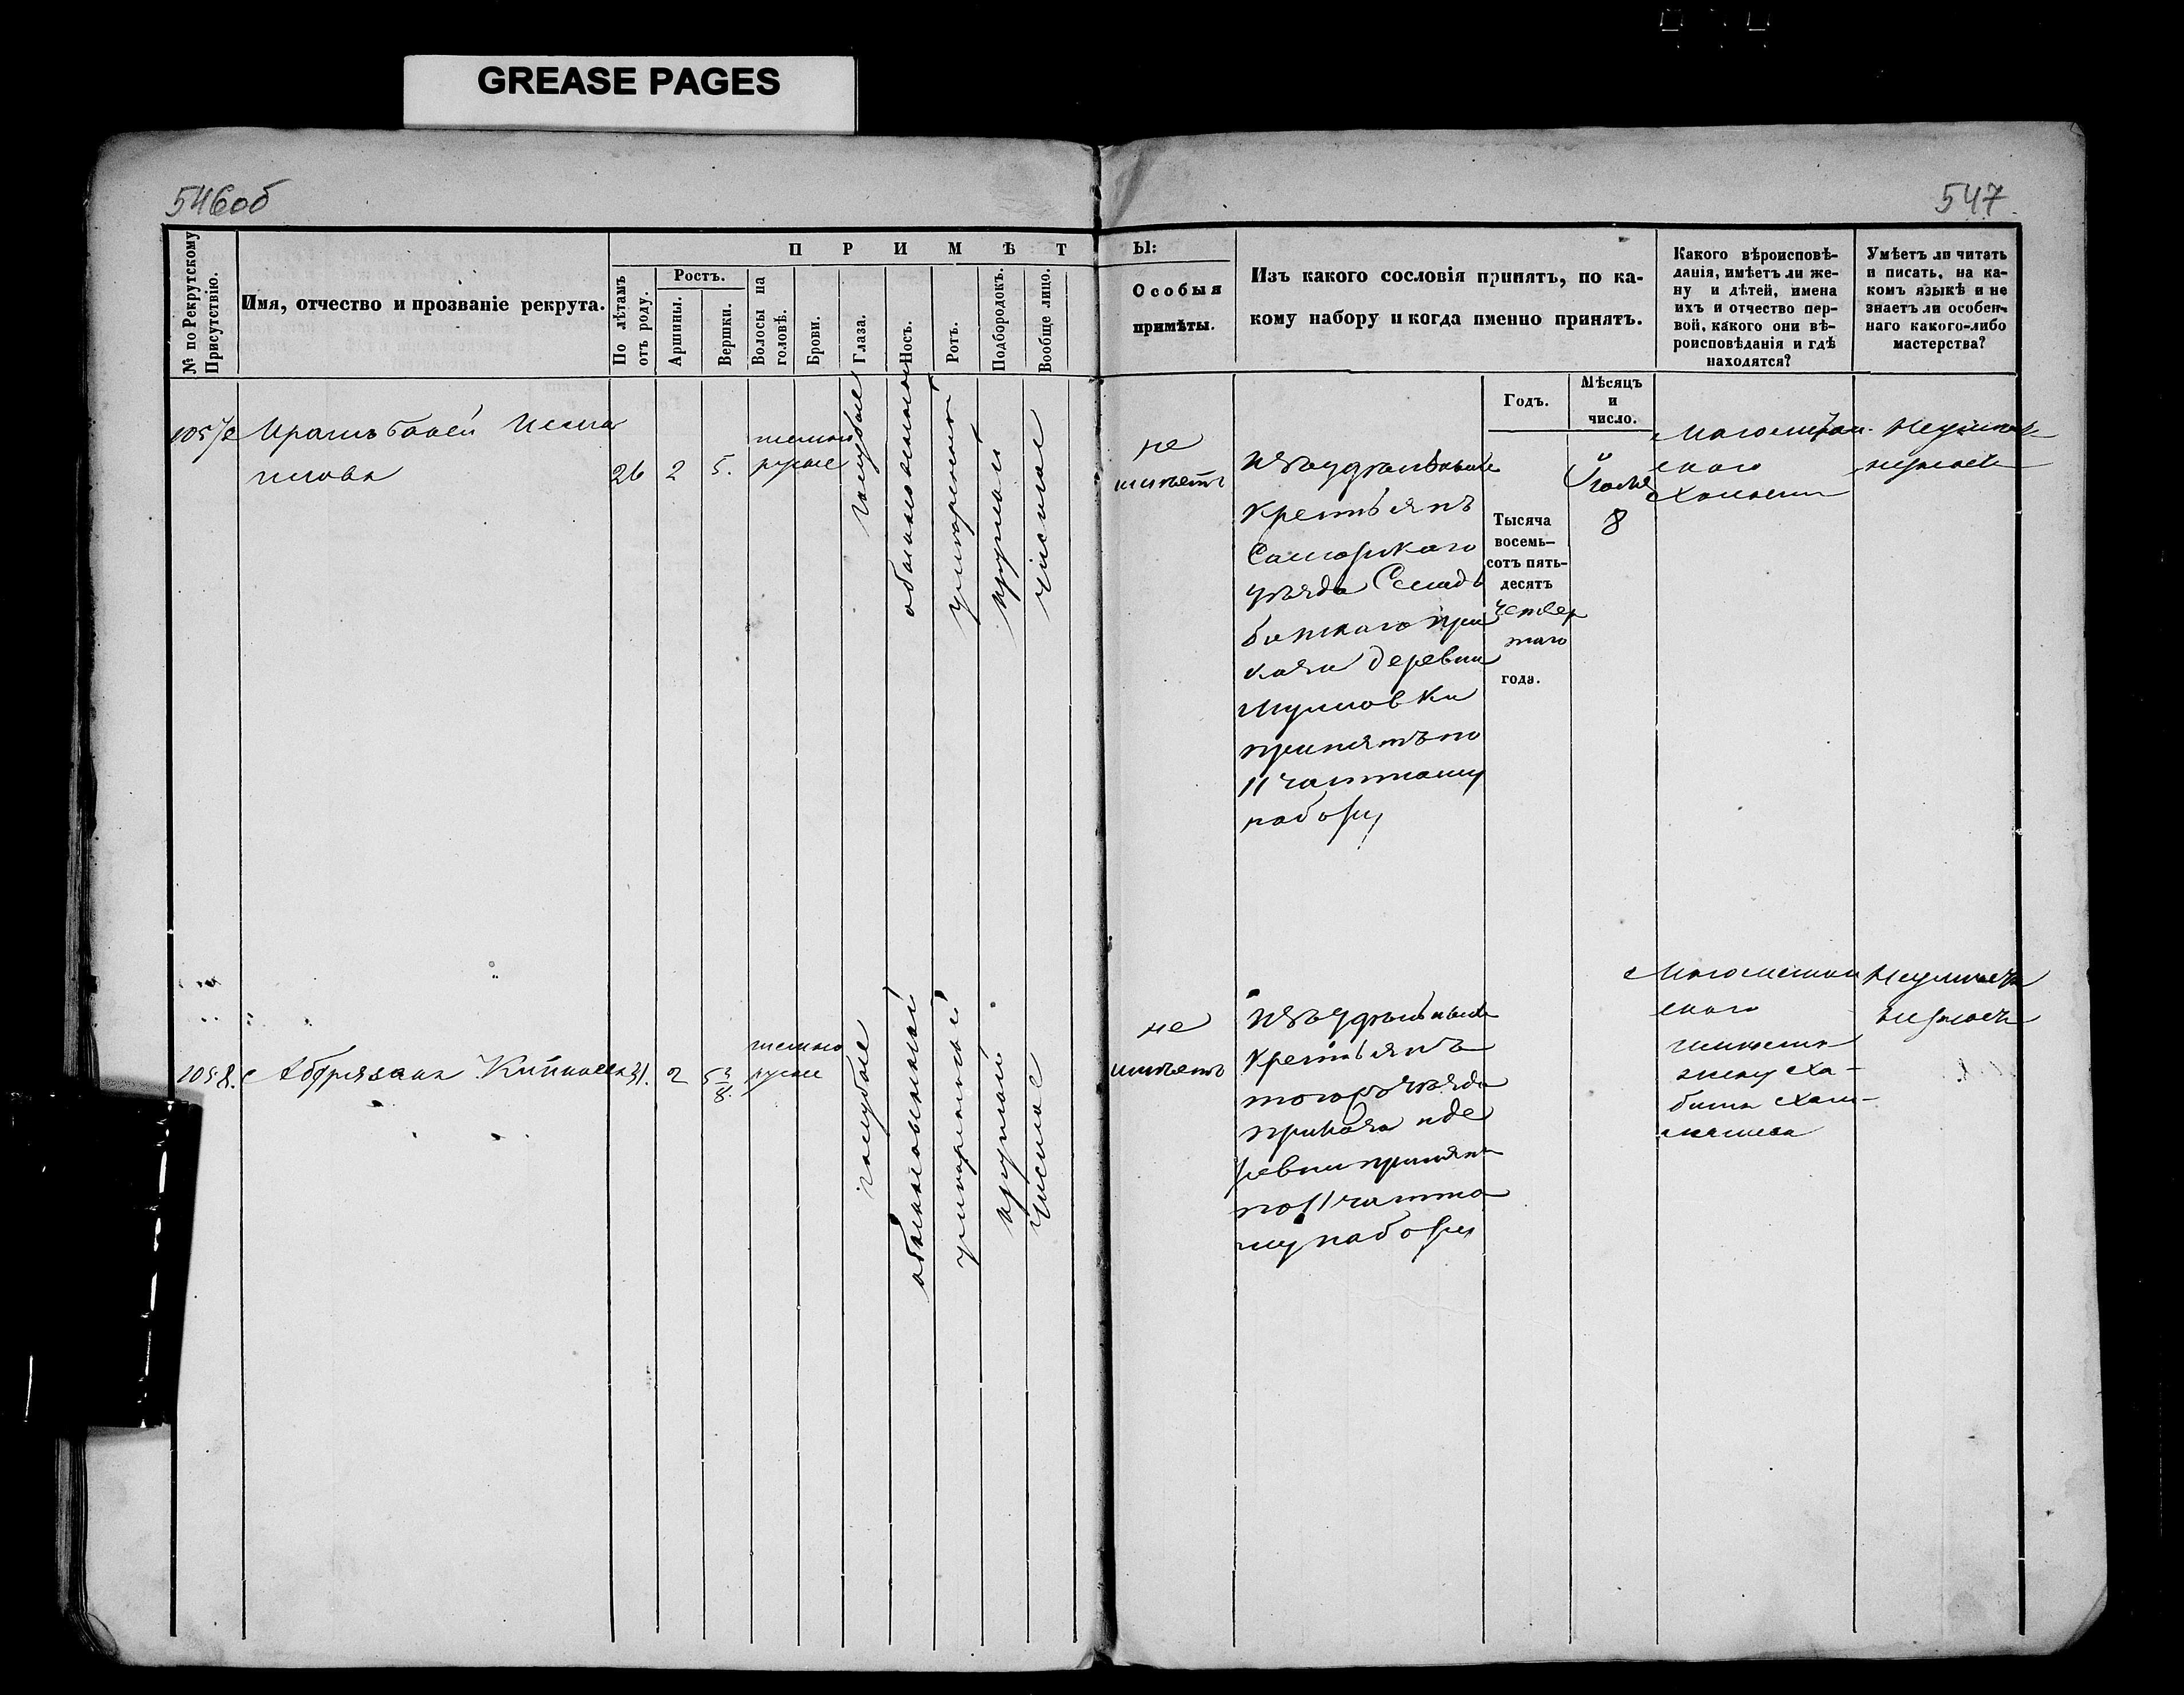 GREASE PAGES
546об
547
№ по Рекрутскому Присутствію.
Имя, отчество и прозваніе рекрута.
П Р И М Ѣ Т Ы:
По лѣтамъ отъ роду.
Ростъ.
Аршины.
Вершки.
Волосы на головѣ.
Брови.
Глаза.
Носъ.
Ротъ.
Подбородокъ.
Вообще лицо.
Особыя
примѣты.
Изъ какого сословія принятъ, по ка-
кому набору и когда именно принятъ.
Годъ.
Мѣсяцъ
и
число.
Какого вѣроисповѣ-
данія, имѣетъ ли же-
ну и дѣтей, имена
ихъ и отчество пер-
вой, какого они вѣ-
роисповѣданія и гдѣ
находятся?
Умѣетъ ли читать
и писать, на ка-
комъ языкѣ и не
знаетъ ли особен-
наго какого-либо
мастерства?
1057
26
2
5.
темно
русые
голубые
обыкновенный
умѣренный
круглый
чистое
не
имѣетъ
Изъ удѣльныхъ
крестьянъ
Самарскаго
уѣзда
приказа деревни
принятъ по
11 частному
набору
Тысяча
восемь-
сотъ пять-
десятъ
четвер
таго
года.
Іюля
8
Магометан
скаго
Холостъ
Неумѣетъ
незнаетъ
1058.
31.
2
5 3/8.
темно
русые
голубые
обыкновенный
умѣренный
круглый
чистое
не
имѣетъ
Изъ удѣльныхъ
крестьянъ
тогожъ уѣзда
приказа и де
ревни принятъ
по 11 частно
му набору
Магометан
скаго
имѣетъ
жену Ха-
Неумѣетъ
незнаетъ